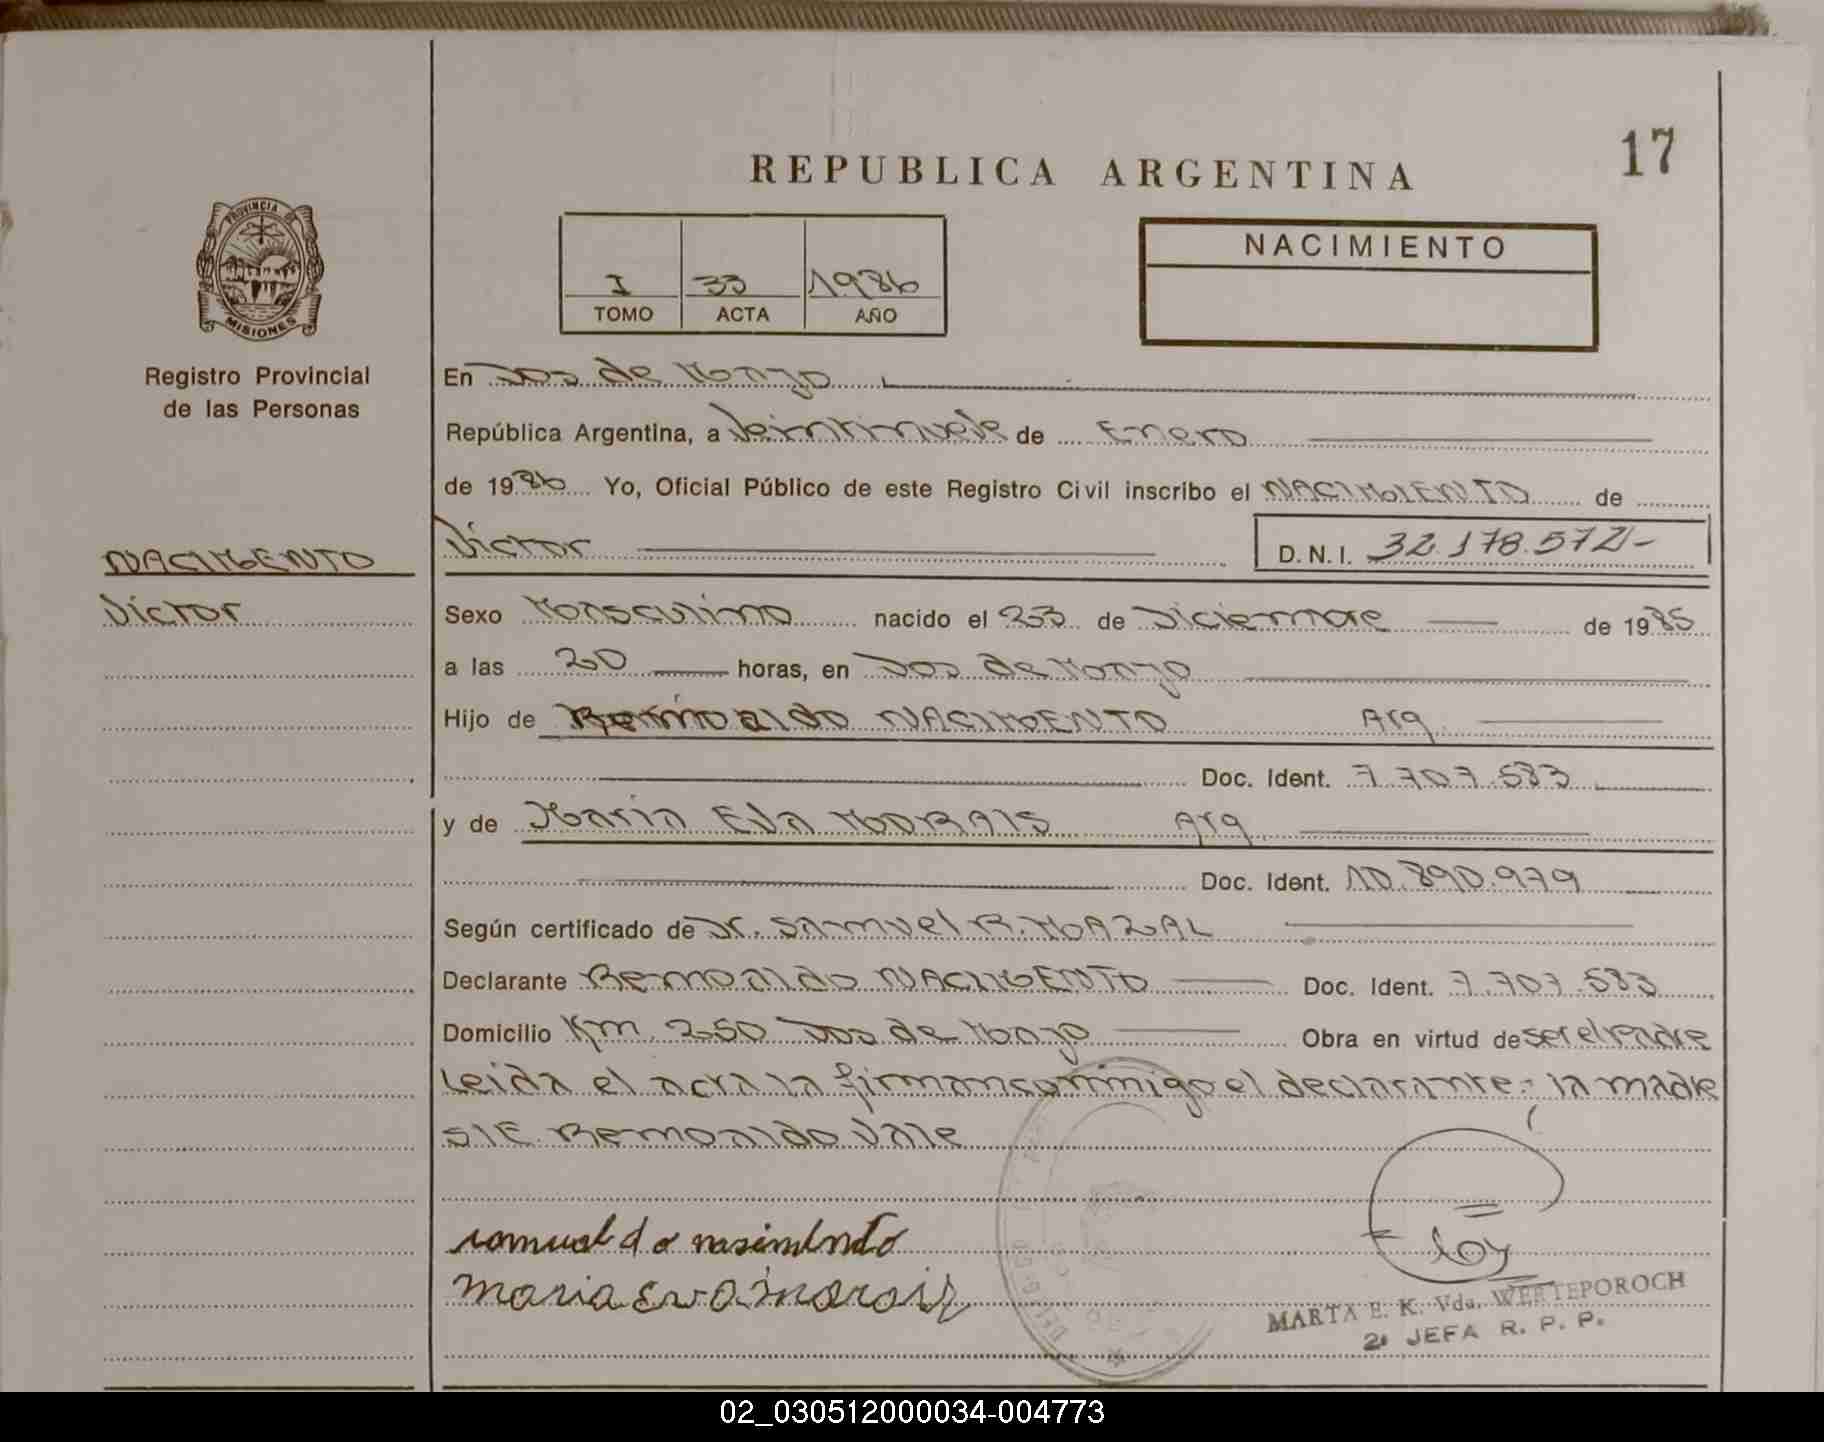 17
REPUBLICA ARGENTINA
PROVINCIA DE
MISIONES
Registro Provincial
de las Personas
I 33 1986
TOMO ACTA AÑO
NACIMIENTO
En Dos de Mayo
República Argentina, a Veintinueve de Enero
de 1986 Yo, Oficial Público de este Registro Civil inscribo el NACIMIENTO de
NACIMENTO
Victor
Victor D.N.I. 32.178.572-
Sexo Masculino nacido el 23 de Diciembre de 1985
a las 20 horas, en Dos de Mayo
Hijo de Remoaldo NACIMENTO Arg.
Doc. Ident. 7.707.583
y de Maria Eva MORAIS Arg.
Doc. Ident. 10.890.979
Según certificado de Dr. Samuel R. MAZAL
Declarante Remoaldo NACIMENTO Doc. Ident. 7.707.583
Domicilio Km. 250 Dos de Mayo Obra en virtud de ser el Padre
Leida el acta la firman conmigo el declarante y la madre
S/E. Remoaldo Vale
romualdo nasimento
maria Eva morais
MARTA E. K. Vda. WERTEPOROCH
2a JEFA R. P. P.
02_030512000034-004773